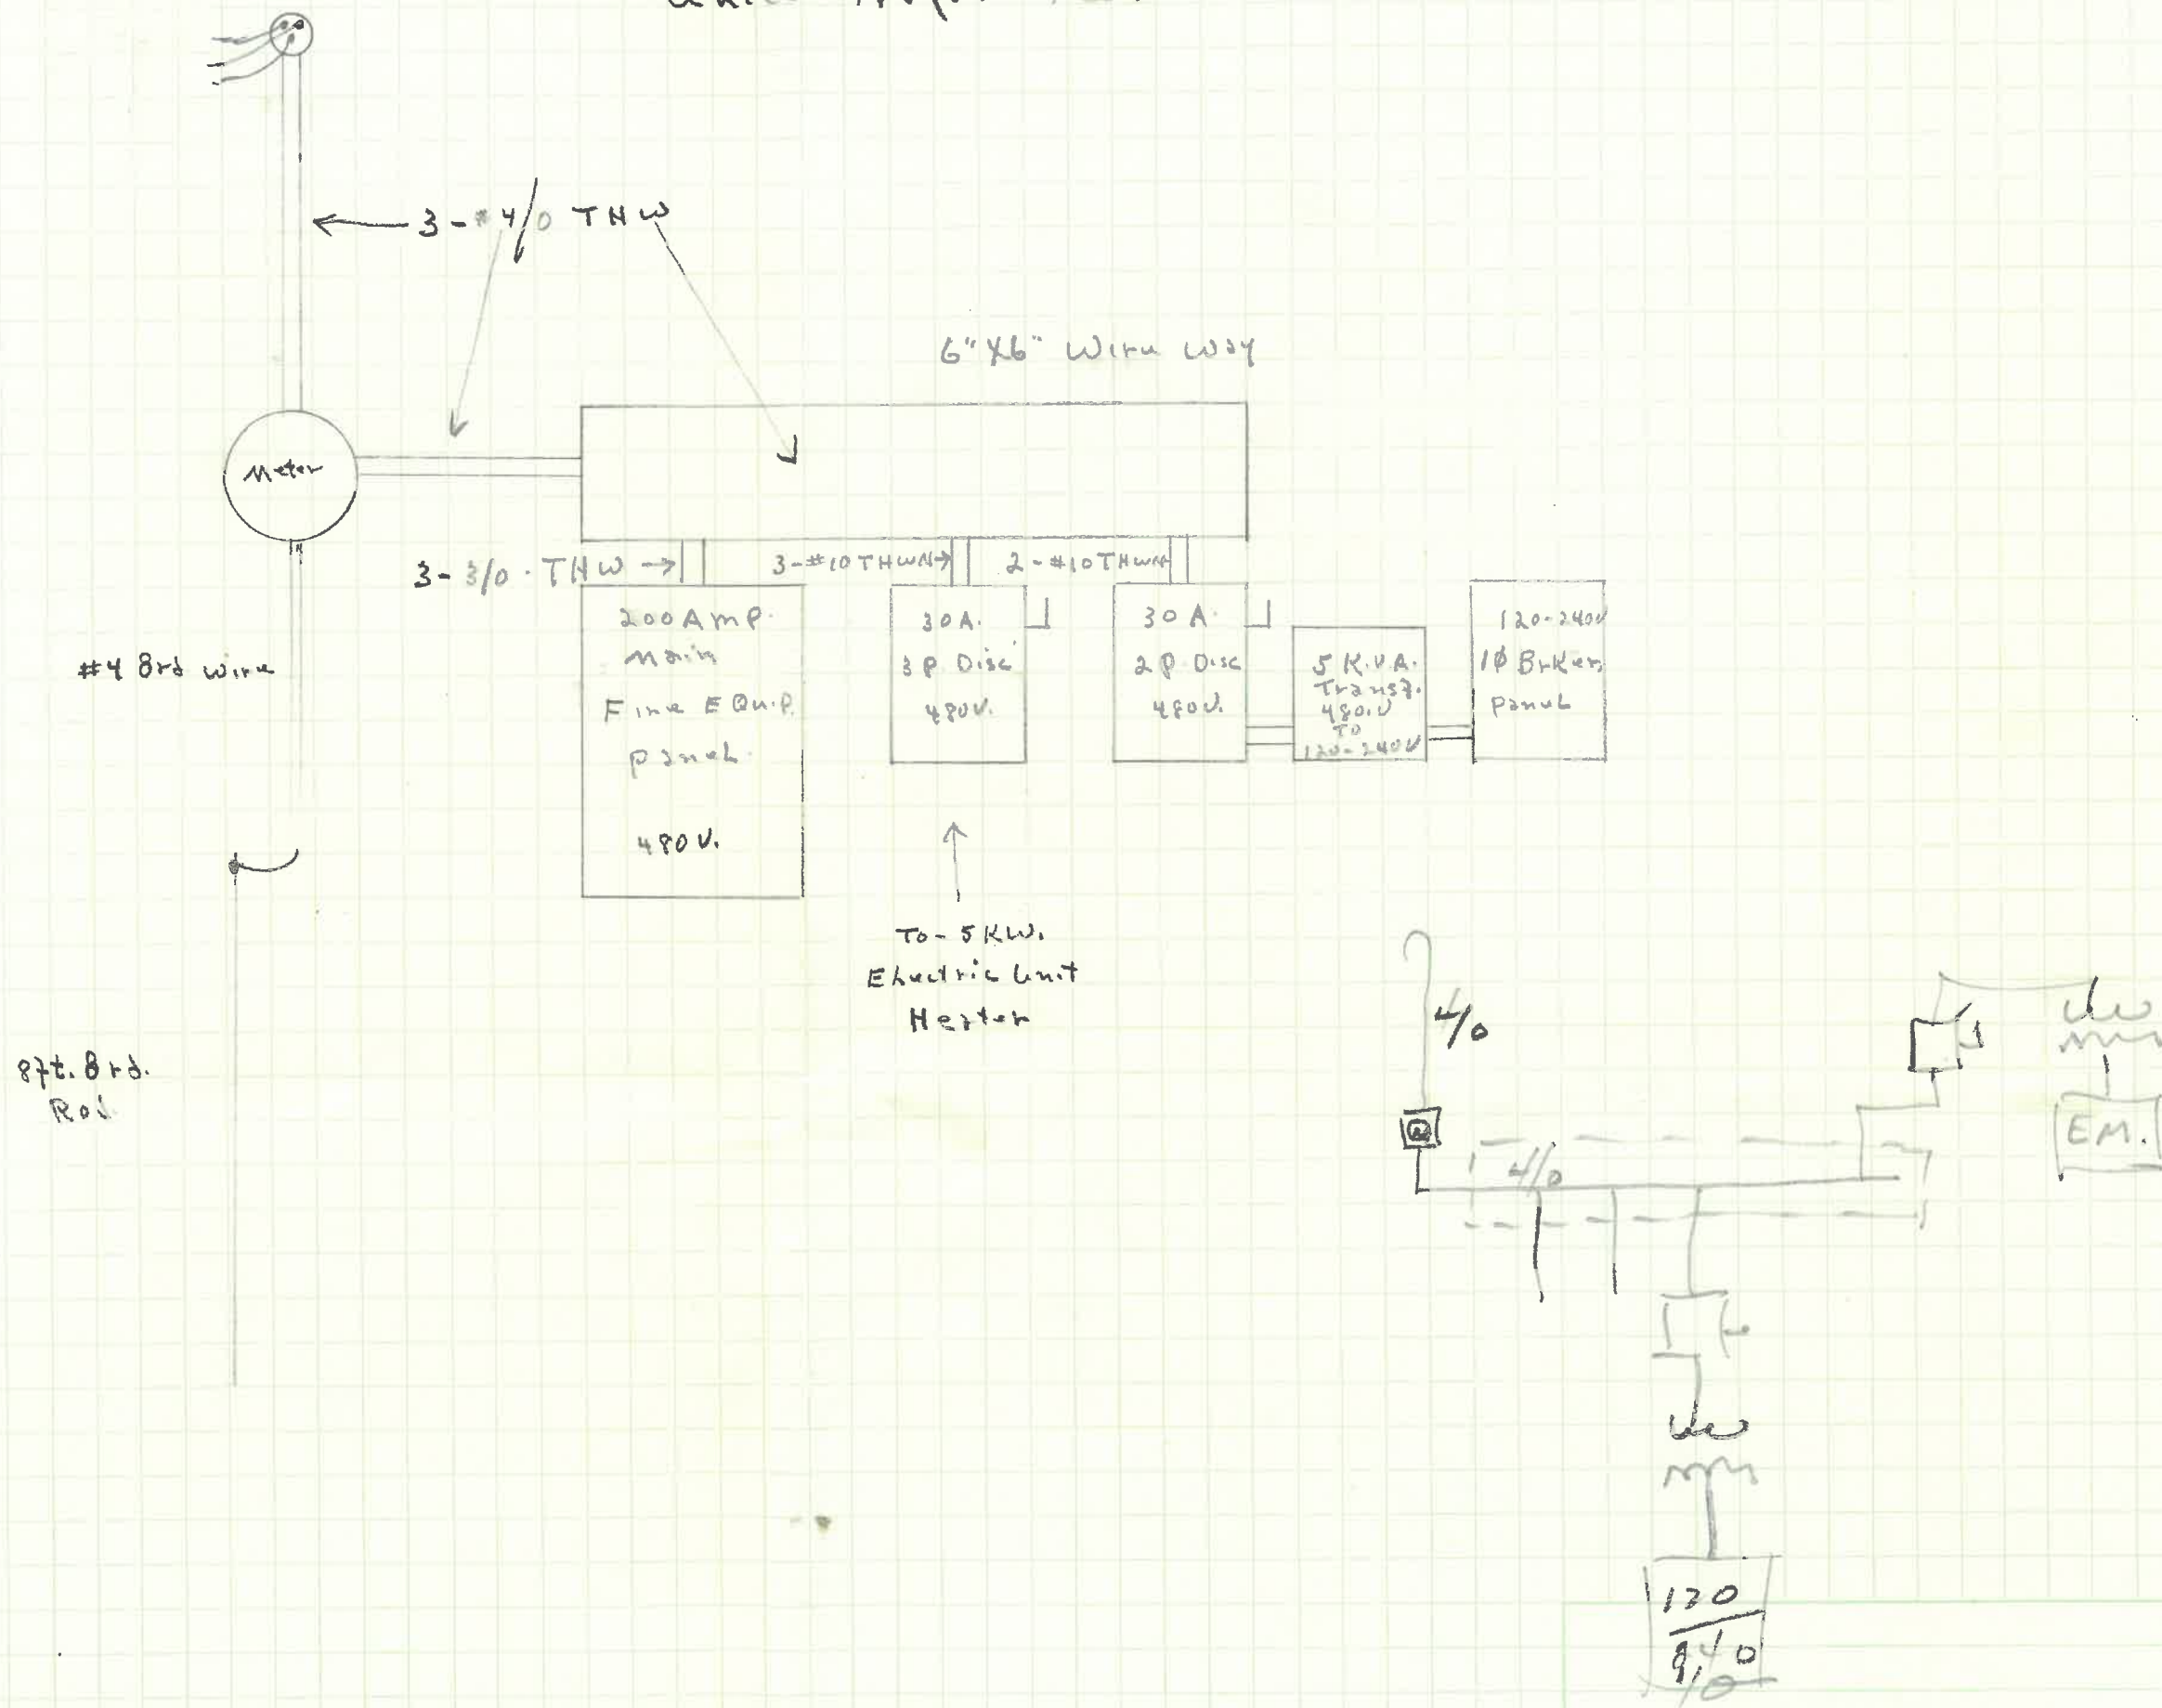 3-#4/0 THW
6"X6" Wire Way
Meter
3-3/0. THW
3-#10 THWN
2-#10 THWN
200 Amp.
Main
Fire EQuip.
panel.
480V.
30 A.
3 P Disc
480V.
30 A.
2 P Disc
480V.
5 K.V.A.
Transf.
480.V
TO
120-240V
120-240V
1Ø Brker
panel
#4 Grd wire
To-5KW.
Electric Unit
Heater
8ft. Grd.
Rod
4/0
4/0
EM.
120